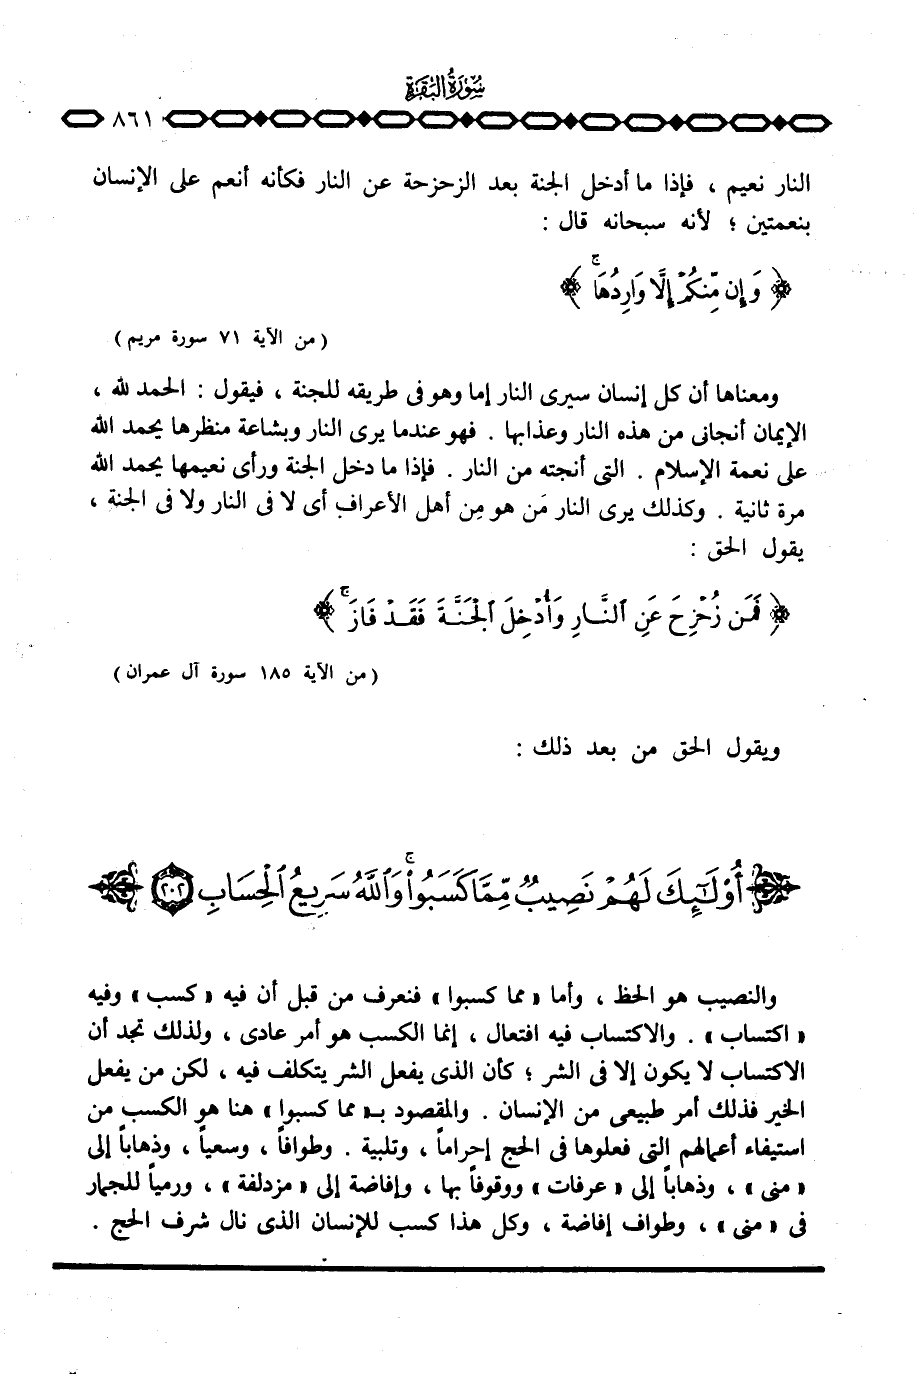 سورة البقرة
٨٦١
النار نعيم ، فإذا ما أدخل الجنة بعد الزحزحة عن النار فكأنه أنعم على الإنسان
بنعمتين ؛ لأنه سبحانه قال :
﴿ وَإِن مِّنكُمْ إِلَّا وَارِدُهَا ۚ ﴾
( من الآية ٧١ سورة مريم )
ومعناها أن كل إنسان سيرى النار إما وهو فى طريقه للجنة ، فيقول : الحمد لله ،
الإيمان أنجانى من هذه النار وعذابها . فهو عندما يرى النار وبشاعة منظرها يحمد الله
على نعمة الإسلام . التى أنجته من النار . فإذا ما دخل الجنة ورأى نعيمها يحمد الله
مرة ثانية . وكذلك يرى النار مَن هو مِن أهل الأعراف أى لا فى النار ولا فى الجنة ،
يقول الحق :
﴿ فَمَن زُحْزِحَ عَنِ ٱلنَّارِ وَأُدْخِلَ ٱلْجَنَّةَ فَقَدْ فَازَ ۚ ﴾
( من الآية ١٨٥ سورة آل عمران )
ويقول الحق من بعد ذلك :
﴿ أُوْلَـٰٓئِكَ لَهُمْ نَصِيبٌ مِّمَّا كَسَبُوا۟ ۚ وَٱللَّهُ سَرِيعُ ٱلْحِسَابِ ٢٠٢ ﴾
والنصيب هو الحظ ، وأما « مما كسبوا » فنعرف من قبل أن فيه « كسب » وفيه
« اكتساب » . والاكتساب فيه افتعال ، إنما الكسب هو أمر عادى ، ولذلك تجد أن
الاكتساب لا يكون إلا فى الشر ؛ كأن الذى يفعل الشر يتكلف فيه ، لكن من يفعل
الخير فذلك أمر طبيعى من الإنسان . والمقصود بـ« مما كسبوا » هنا هو الكسب من
استيفاء أعمالهم التى فعلوها فى الحج إحراماً ، وتلبية . وطوافاً ، وسعياً ، وذهاباً إلى
« منى » ، وذهاباً إلى « عرفات » ووقوفاً بها ، وإفاضة إلى « مزدلفة » ، ورمياً للجمار
فى « منى » ، وطواف إفاضة ، وكل هذا كسب للإنسان الذى نال شرف الحج .